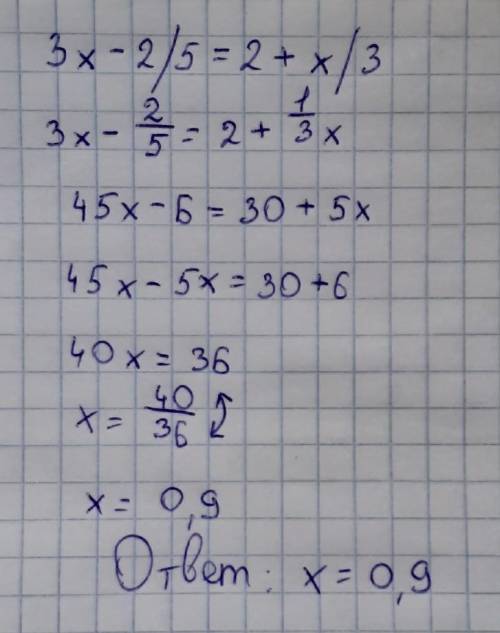 3x - 2/5 = 2 + x/3
3x - 2/5 = 2 + 1/3 x
45x - 6 = 30 + 5x
45x - 5x = 30 + 6
40x = 36
x = 40/36
x = 0,9
Ответ: x = 0,9